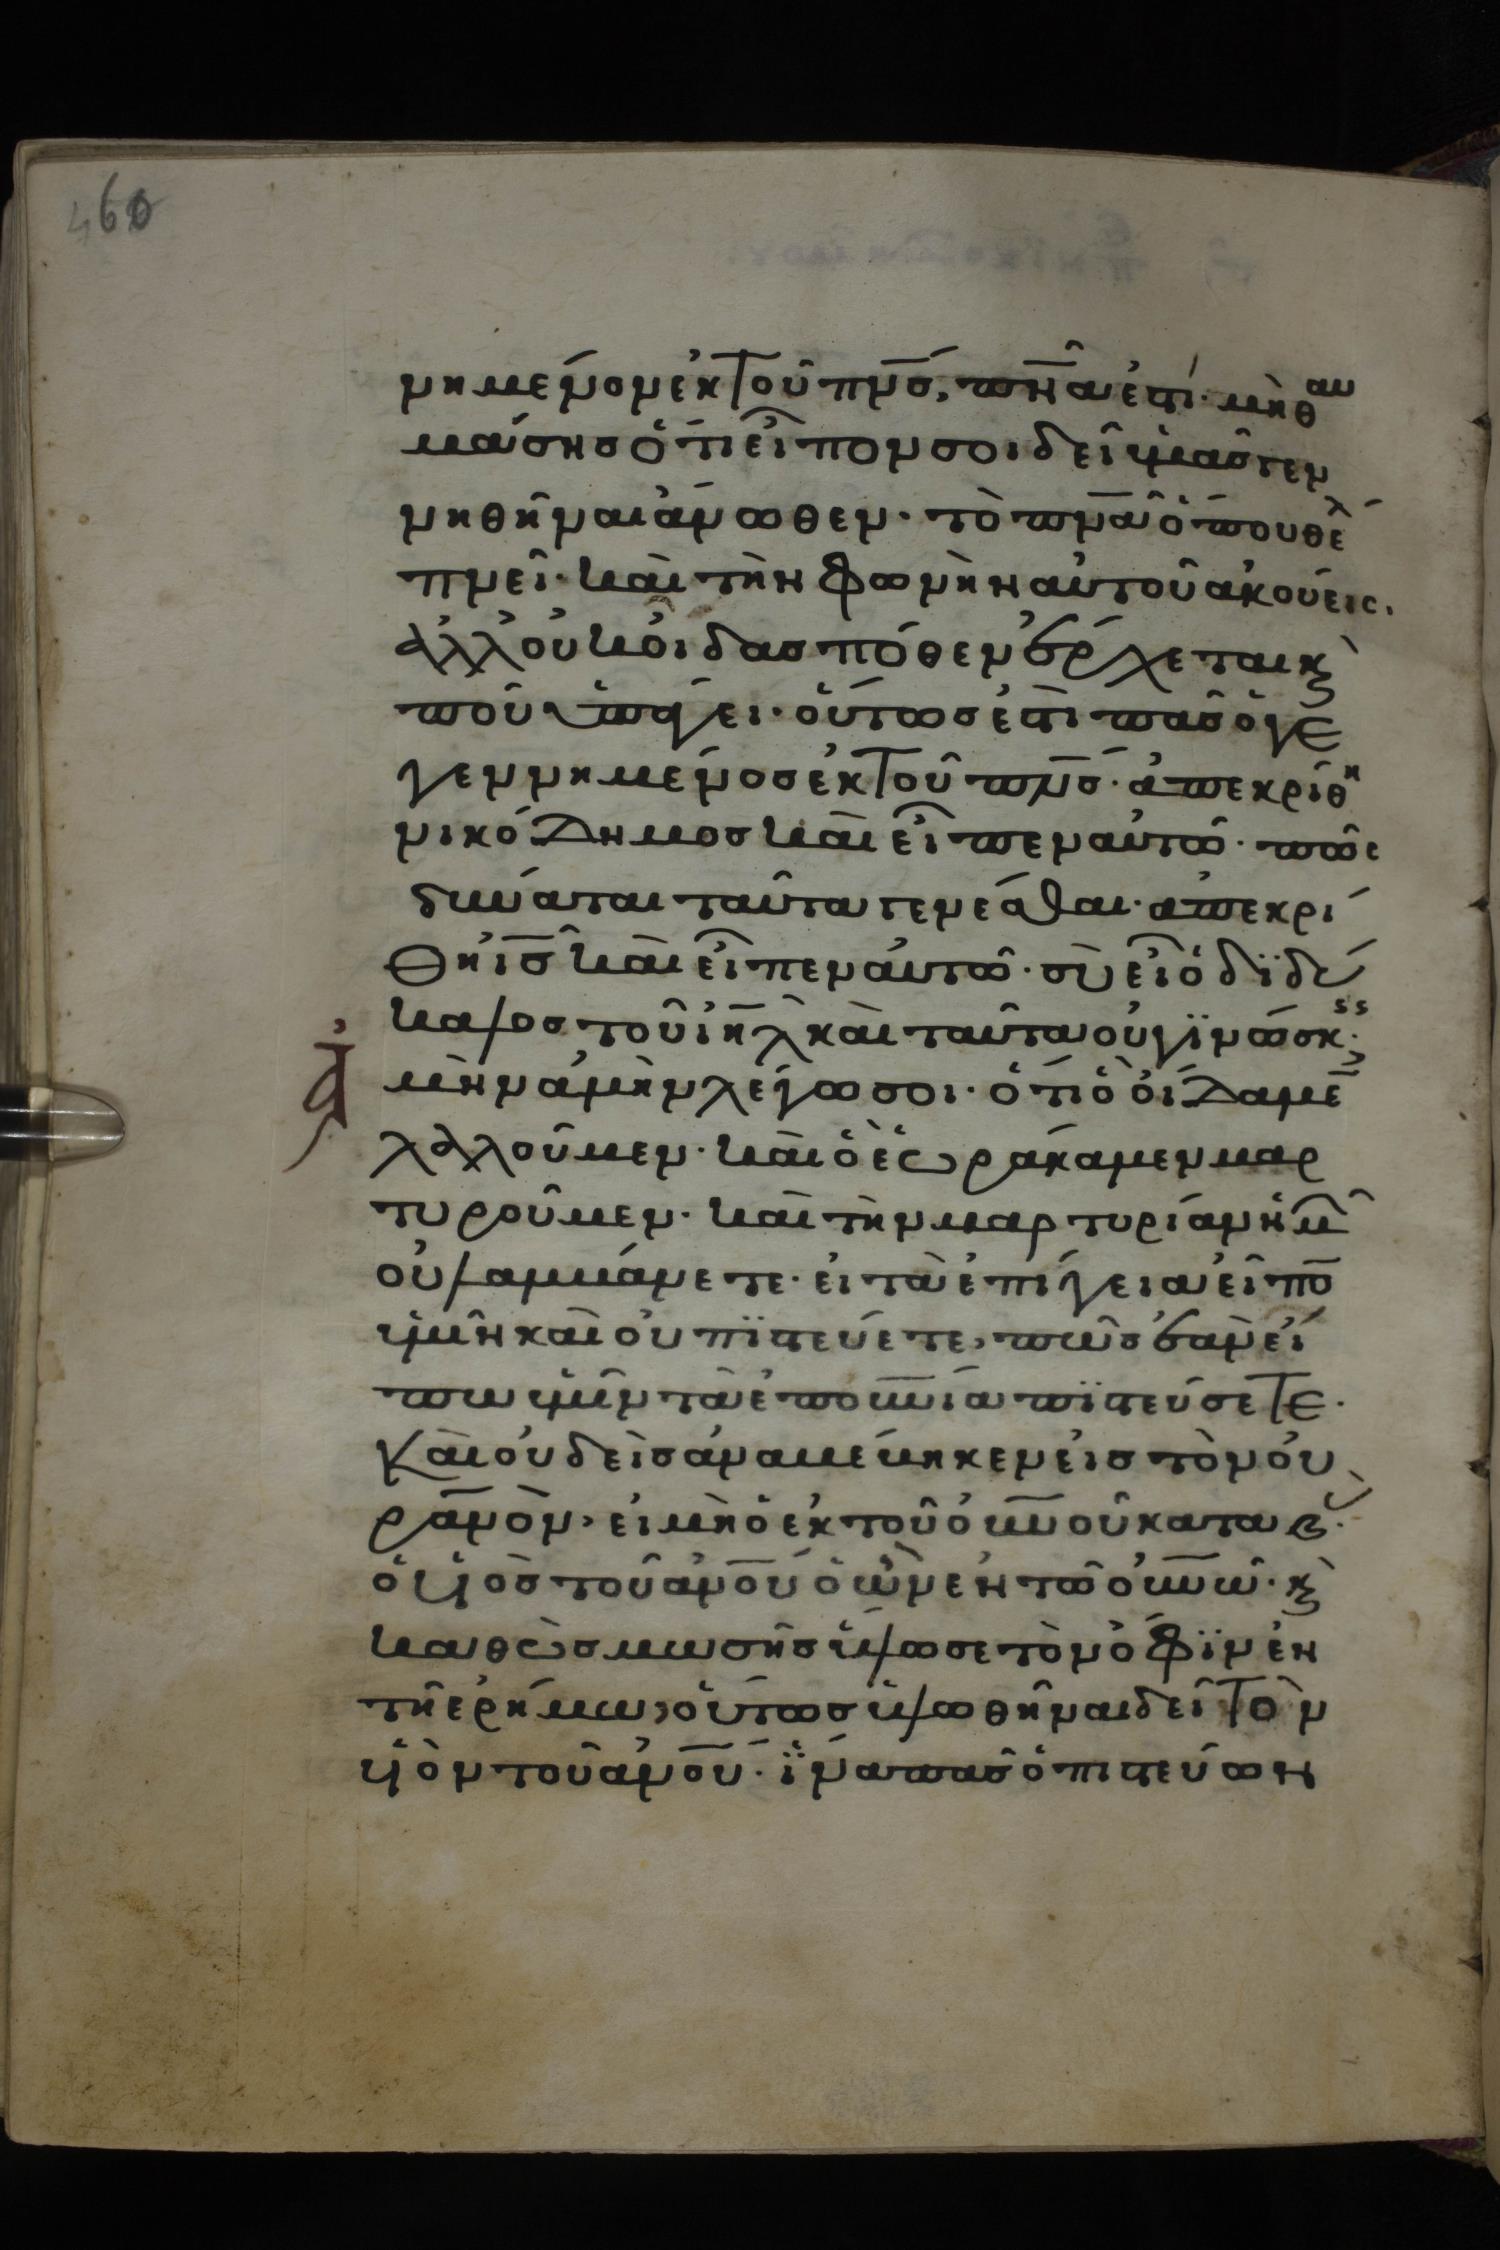 460
νημένον ἐκ τοῦ πνσ, πνᾶ ἐστι· μὴ θαυ
μάσῃς ὅτι εἶπον σοι δεῖ ὑμᾶς γεν
νηθῆναι ἄνωθεν· τὸ πνᾶ ὅπου θέλ
πνεῖ· καὶ τὴν φωνὴν αὐτοῦ ἀκούεις.
ἀλλ οὐκ οἶδας πόθεν ἔρχεται κ
ποῦ ὑπάγει· οὕτως ἐστὶ πᾶς ὁ γε
γεννημένος ἐκ τοῦ πνσ· ἀπεκρίθη
νικόδημος καὶ εἶπεν αὐτῶ· πῶς
δύναται ταῦτα γενέσθαι· ἀπεκρί
θη ισ καὶ εἶπεν αὐτῶ· σὺ εἶ ὁ διδά
καλος τοῦ ιηλ καὶ ταῦτα οὐ γϊνώσκεις·
ἀμὴν ἀμὴν λέγω σοι· ὅτι ὃ οἴδαμεν
λαλοῦμεν· καὶ ὃ ἑωράκαμεν μαρ
τυροῦμεν· καὶ τὴν μαρτυρίαν ἡμῶν
οὐ λαμβάνετε· εἰ τὰ ἐπίγεια εἶπον
ὑμῖν καὶ οὐ πϊστεύετε, πῶς ἐὰν εἴ
πω ὑμῖν τὰ ἐπουνία πϊστεύσετε·
καὶ οὐδεὶς ἀναβέβηκεν εἰς τὸν οὐ
ρανὸν, εἰ μὴ ὁ ἐκ τοῦ οὐνοῦ καταβάς·
ὁ υἱὸς τοῦ ἀνου ὁ ὢν ἐν τῶ οὐνῶ· κ
καθὼς μωσῆς ὕψωσε τὸν ὄφϊν ἐν
τῆ ἐρήμω, οὕτως ὑψωθῆναι δεῖ τὸν
υἱὸν τοῦ ἀνου· ἵνα πᾶς ὁ πιστεύων